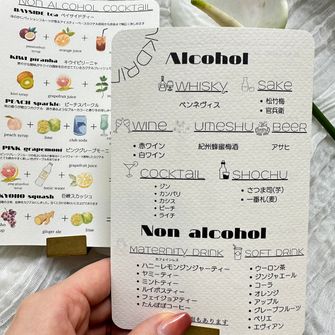 NON ALCOHOL COCKTAIL
BAYSIDE tea ベイサイドティー
KIWI puranha キウイピリーニャ
kiwi
grapefruit juice
PEACH sparkle ピーチスパークル
peach syrup
lime
club soda
PINK grapemoni ピンクグレープモーニ
KYOHO squash 巨峰スカッシュ
ginger ale
DRINK
Alcohol
WHISKY
ペンネヴィス
Sake
・松竹梅
・官兵衛
WINE
・赤ワイン
・白ワイン
UMESHU
紀州蜂蜜梅酒
BEER
アサヒ
COCKTAIL
・ジン
・カンパリ
・カシス
・ピーチ
・ライチ
SHOCHU
・さつま司(芋)
・一番札(麦)
Non alcohol
MATERNITY DRINK
カフェインレス
・ハニーレモンジンジャーティー
・ヤミーティー
・ミントティー
・ルイボスティー
・フェイジョアティー
・たんぽぽコーヒー
もあります
SOFT DRINK
・ウーロン茶
・ジンジャエール
・コーラ
・オレンジ
・アップル
・グレープフルーツ
・ペリエ
・エヴィアン